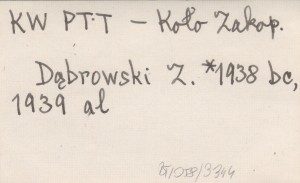 KW PTT - Koło Zakop.
Dąbrowski Z. *1938 bc,
1939 al
BJ/OTS/3344